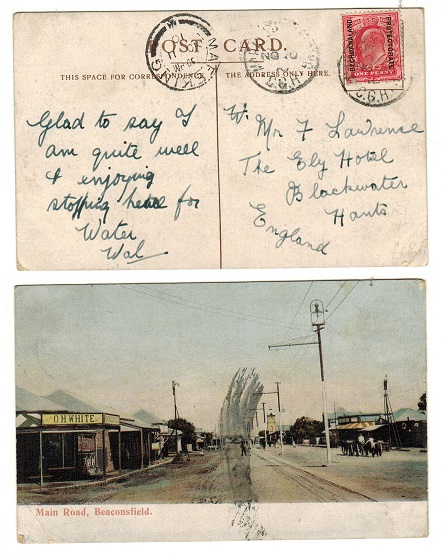 POST CARD.
THIS SPACE FOR CORRESPONDENCE
MAFEKING
BECHUANALAND PROTECTORATE
ONE PENNY
C.G.H.
Glad to say I
am quite well
& enjoying
stopping here for
Water
Wal
Mr F Lawrence
The Ely Hotel
Blackwater
Hants
England
O.H.WHITE
Main Road, Beaconsfield.